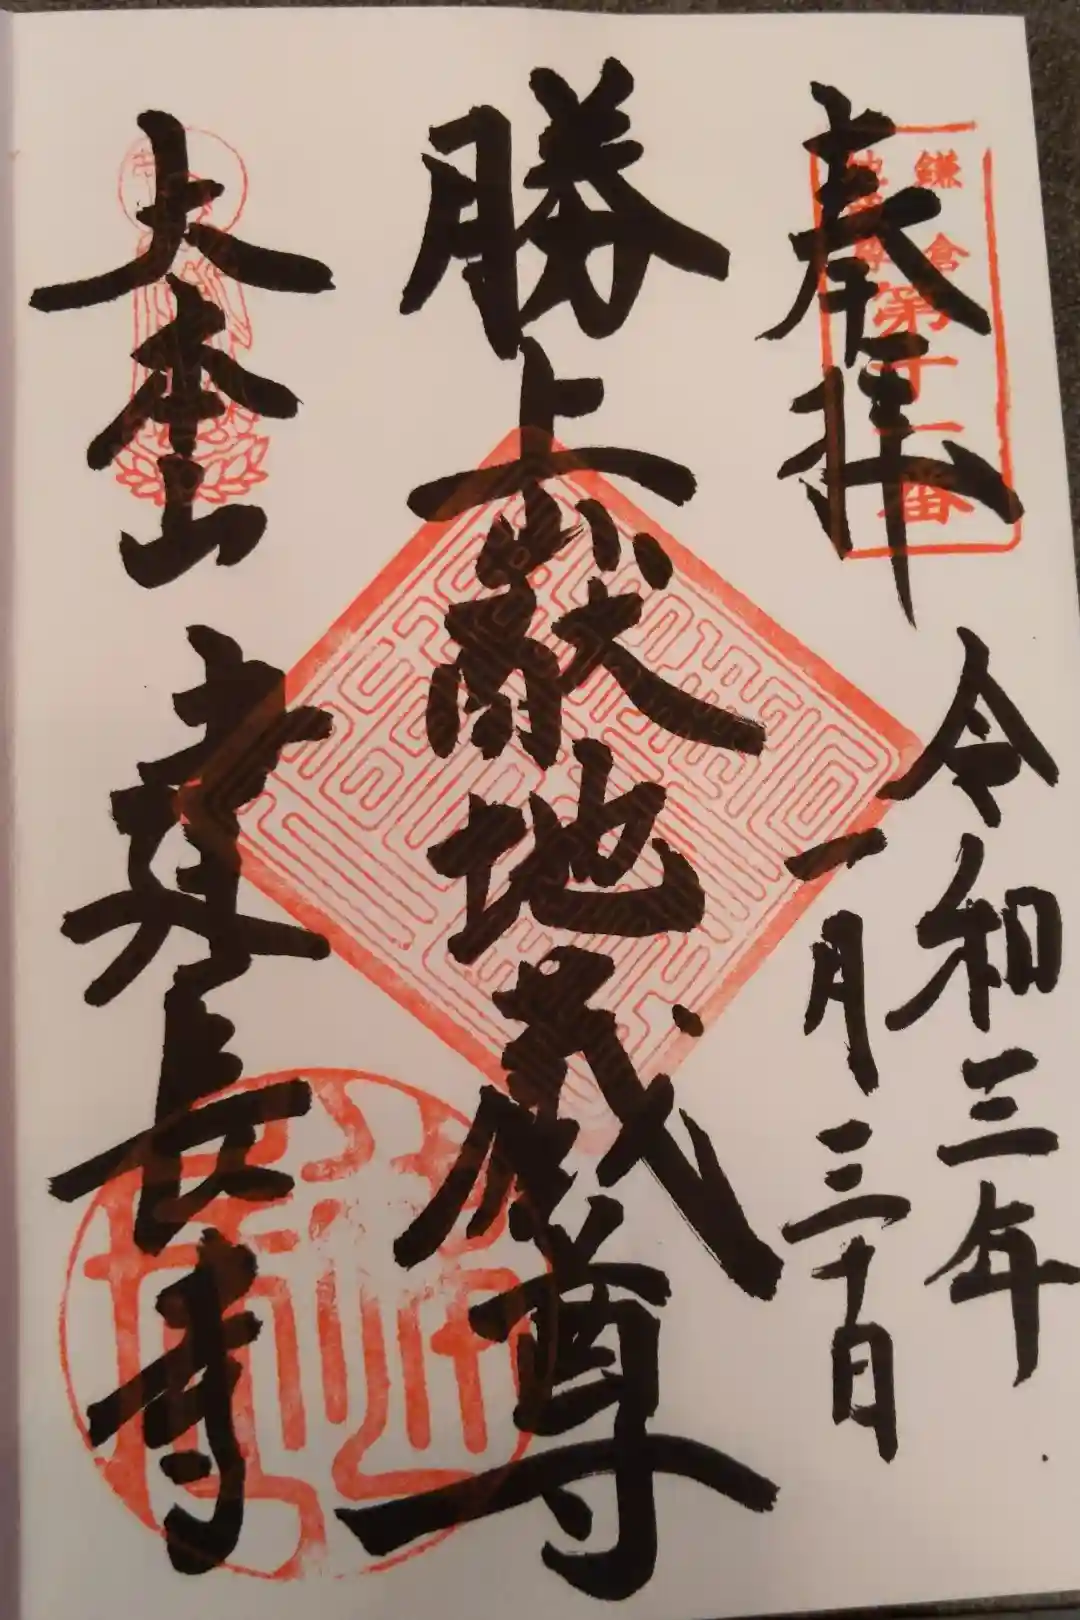 奉拝
鎌倉
地蔵尊
第十一番
令和三年
一月三十日
勝上巘地蔵尊
大本山 建長寺